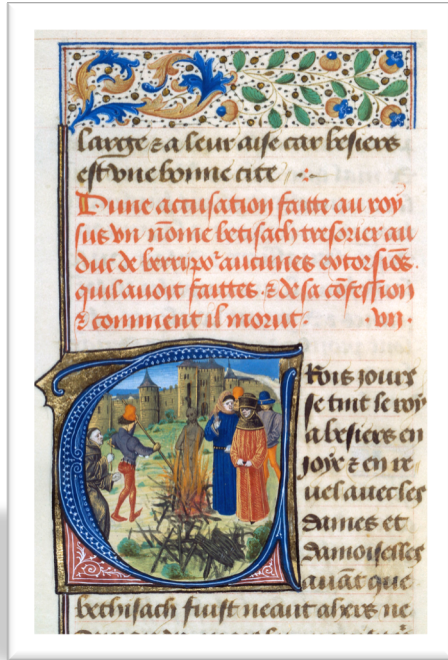 large & a leur aise car besiers
est vne bonne cite
Dune accusation faitte au roy
sus vn nōme betisach tresorier au
duc de berry po^r aucunes eptorsiōs.
quil auoit faittes. & de sa cōfession
& comment il morut. .vii.
Trois jours
se tint le roy
a besiers en
joye & en re
uel auec les
dames et
damoiselles
auāt que
bethisach fuist neant ahers ne